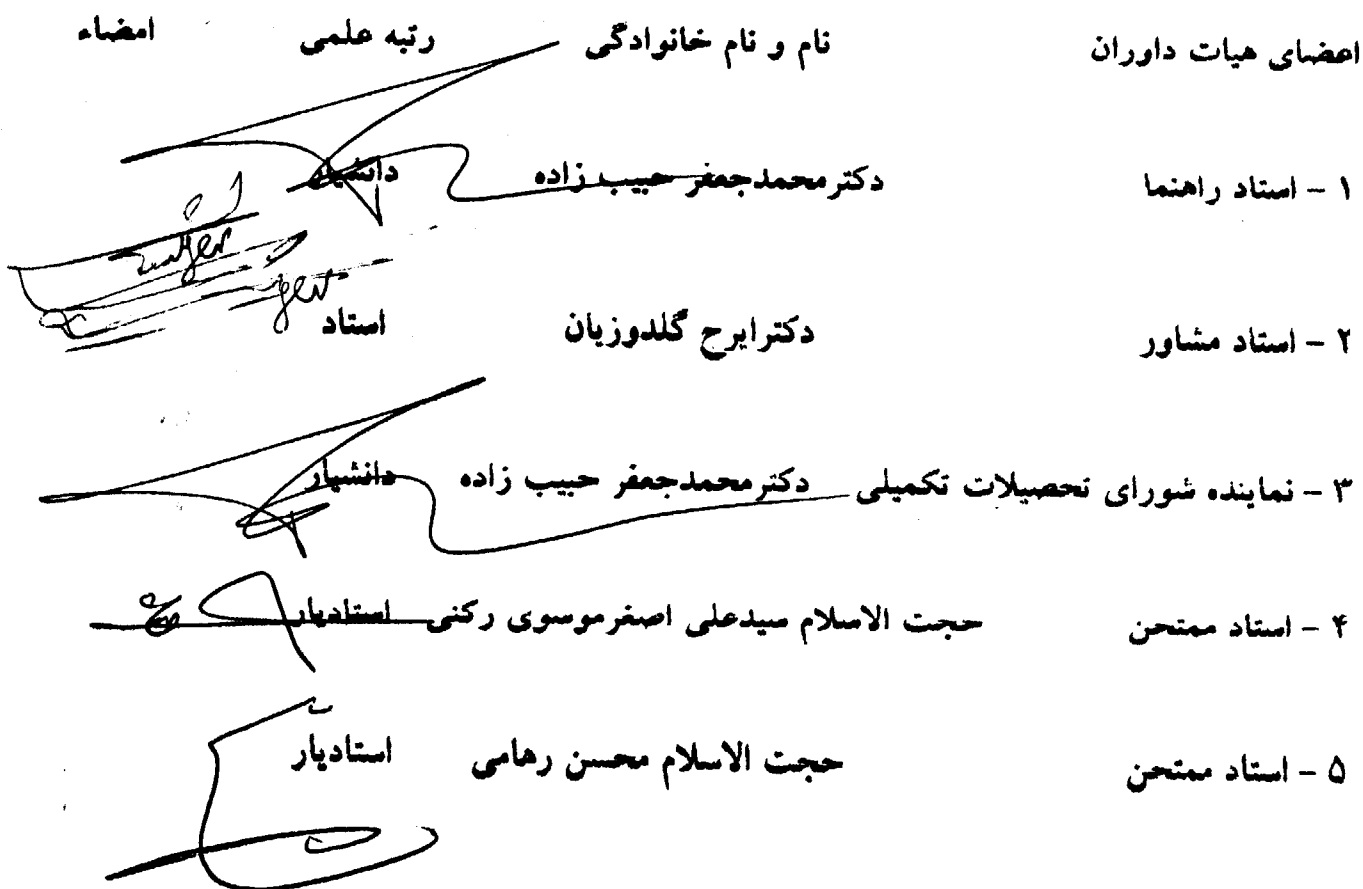 اعضای هیات داوران نام و نام خانوادگی رتبه علمی امضاء
۱ - استاد راهنما دکترمحمدجعفر حبیب زاده دانشیار
۲ - استاد مشاور دکترایرج گلدوزیان استاد
۳ - نماینده شورای تحصیلات تکمیلی دکترمحمدجعفر حبیب زاده دانشیار
۴ - استاد ممتحن حجت الاسلام سیدعلی اصغرموسوی رکنی استادیار
۵ - استاد ممتحن حجت الاسلام محسن رهامی استادیار